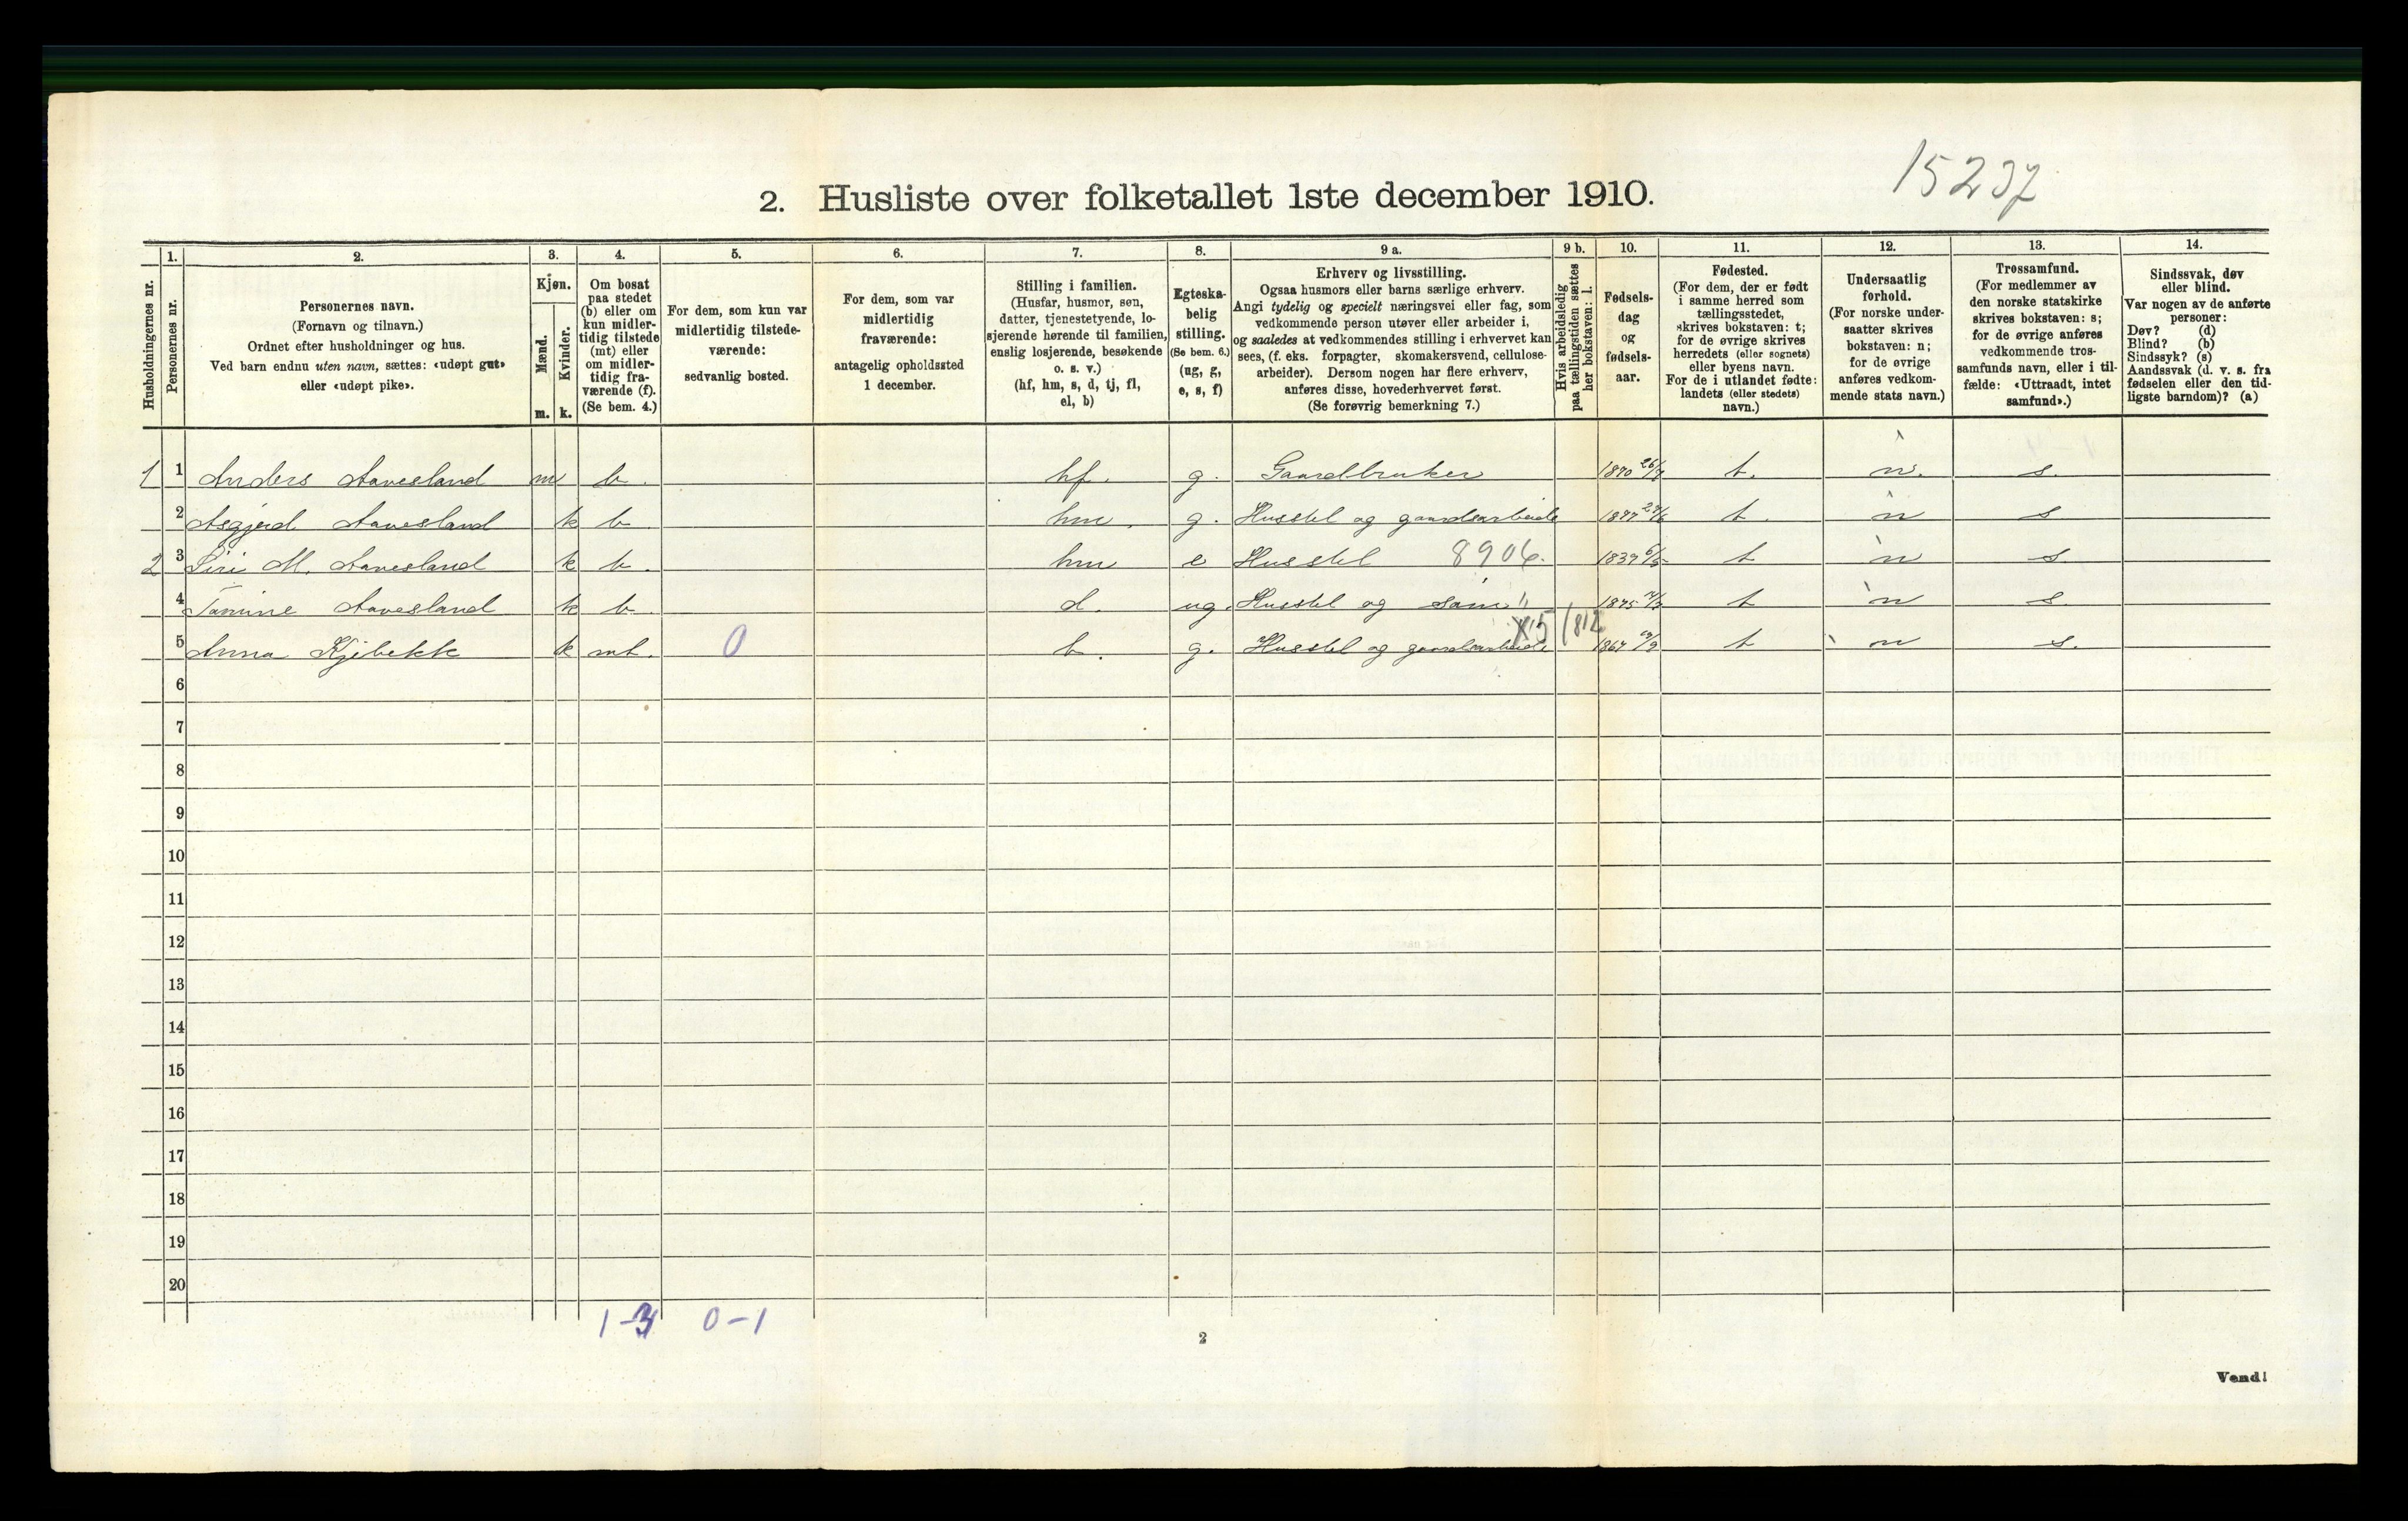 15237
2. Husliste over folketallet 1ste december 1910.
Husholdningernes nr.
1.
Personernes nr.
2.
Personernes navn.
(Fornavn og tilnavn.)
Ordnet efter husholdninger og hus.
Ved barn endnu uten navn, sættes: «udøpt gut»
eller «udøpt pike».
3.
Kjøn.
Mænd.
m.
Kvinder.
k.
4.
Om bosat
paa stedet
(b) eller om
kun midler-
tidig tilstede
(mt) eller
om midler-
tidig fra-
værende (f).
(Se bem. 4.)
5.
For dem, som kun var
midlertidig tilstede-
værende:
sedvanlig bosted.
6.
For dem, som var
midlertidig
fraværende:
antagelig opholdssted
1 december.
7.
Stilling i familien.
(Husfar, husmor, søn,
datter, tjenestetyende, lo-
sjerende hørende til familien,
enslig losjerende, besøkende
o. s. v.)
(hf, hm, s, d, tj, fl,
el, b)
8.
Egteska-
belig
stilling.
(Se bem. 6.)
(ug, g,
e, s, f)
9 a.
Erhverv og livsstilling.
Ogsaa husmors eller barns særlige erhverv.
Angi tydelig og specielt næringsvei eller fag, som
vedkommende person utøver eller arbeider i,
og saaledes at vedkommendes stilling i erhvervet kan
sees, (f. eks. forpagter, skomakersvend, cellulose-
arbeider). Dersom nogen har flere erhverv,
anføres disse, hovederhvervet først.
(Se forøvrig bemerkning 7.)
9 b.
Hvis arbeidsledig
paa tællingstiden sættes
her bokstaven: l.
10.
Fødsels-
dag
og
fødsels-
aar.
11.
Fødested.
(For dem, der er født
i samme herred som
tællingsstedet,
skrives bokstaven: t;
for de øvrige skrives
herredets (eller sognets)
eller byens navn.
For de i utlandet fødte:
landets (eller stedets)
navn.)
12.
Undersaatlig
forhold.
(For norske under-
saatter skrives
bokstaven: n;
for de øvrige
anføres vedkom-
mende stats navn.)
13.
Trossamfund.
(For medlemmer av
den norske statskirke
skrives bokstaven: s;
for de øvrige anføres
vedkommende tros-
samfunds navn, eller i til-
fælde: «Uttraadt, intet
samfund».)
14.
Sindssvak, døv
eller blind.
Var nogen av de anførte
personer:
Døv? (d)
Blind? (b)
Sindssyk? (s)
Aandssvak (d. v. s. fra
fødselen eller den tid-
ligste barndom)? (a)
1 1 Anders Aavesland m b. hf. g. Gaardbruker 1870 t. n. s.
2 Asgjerd Aavesland k b. hm. g. Husstel og gaardsarbeide 1877 t. n s
2 3 Siri M. Aavesland k b. hm e Husstel 8906. 1837 t n s.
4 Tomine Aavesland k b. d. ug. Husstel og 1875 t n s.
5 Anna Kjebekk k mt. 0 b. g. Husstel og gaardsarbeide 1867 t n s.
6
7
8
9
10
11
12
13
14
15
16
17
18
19
20
1-3 0-1
2
Vend!